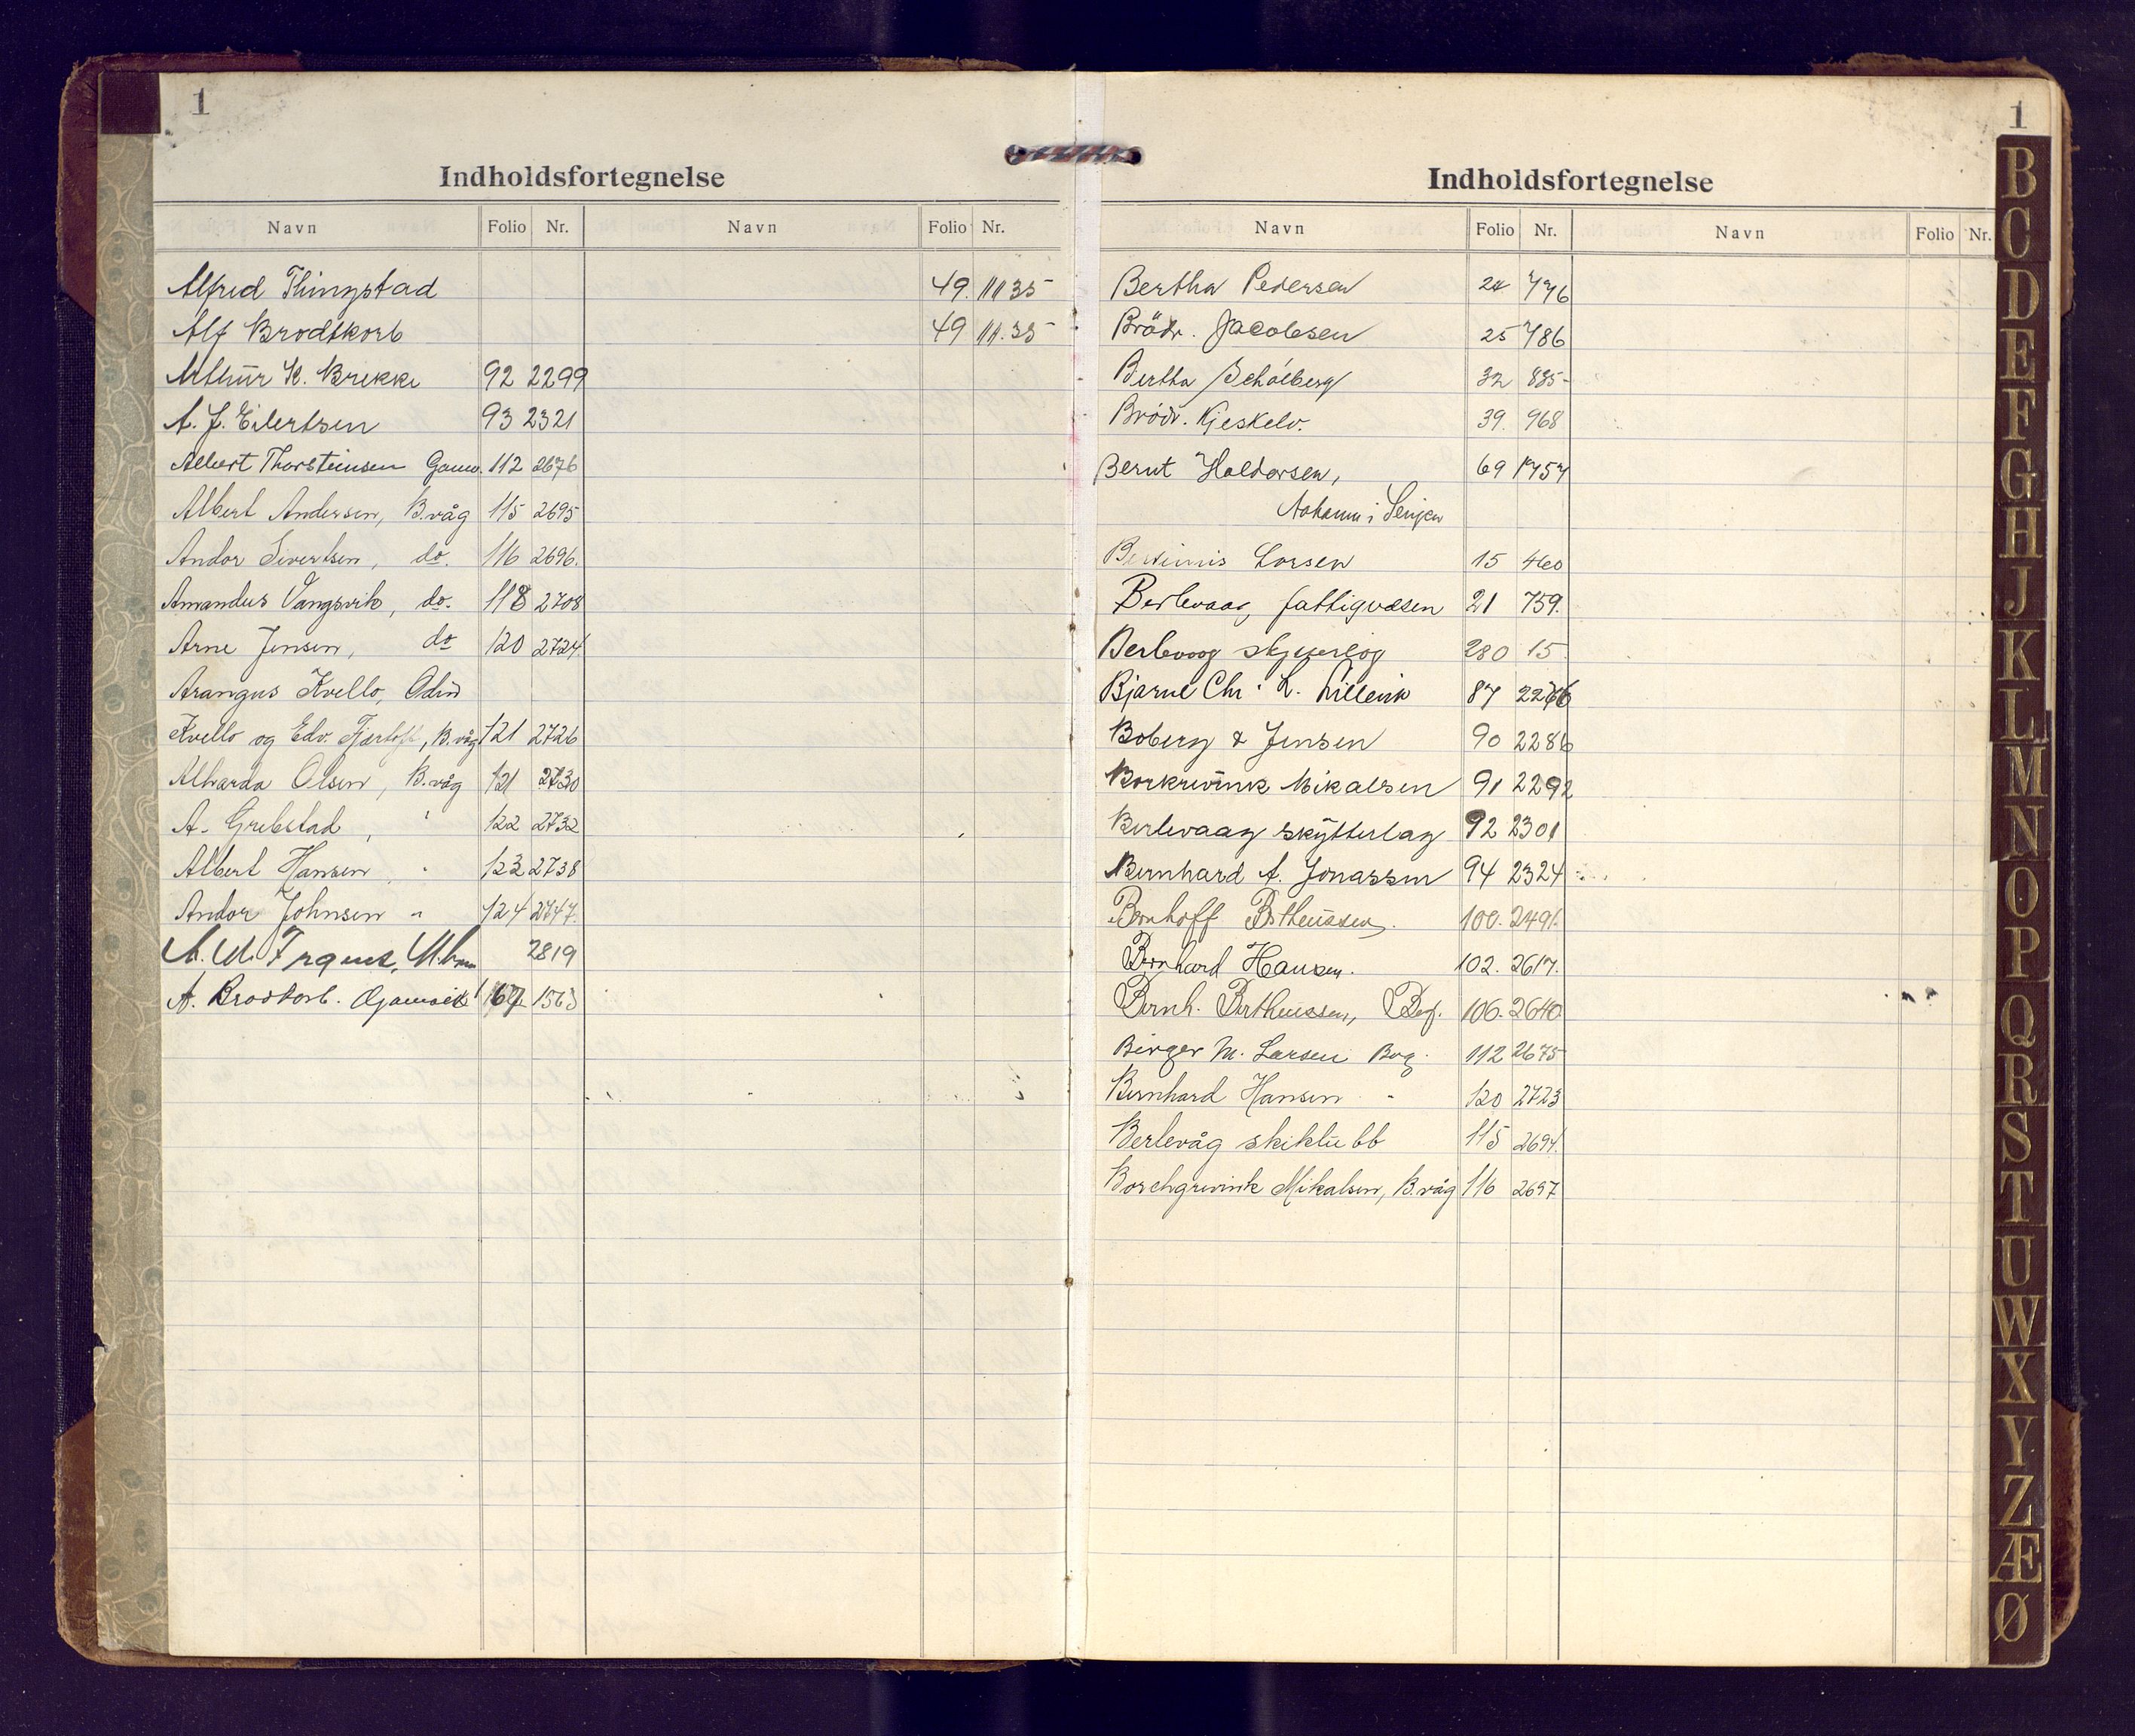 1
Indholdsfortegnelse
Navn Folio Nr. Navn Folio Nr.
Alfred Thingstad 49. 1135
Alf Brodtkorb 49 11.35
Arthur K. Brekke 92 2299
A. J. Eilertsen 93 2321
Albert Thorsteinsen Gamv. 112 2676
Albert Andersen, B.våg 115 2695
Andor Sivertsen, do. 116 2696.
Amandus Vangsvik, do. 118 2708
Arne Jensen, do 120 2724.
Arangus Kvello, Odin
Kvello og Edv. Fjærtoft, B.våg 121 2726
Alvarda Olsen, B.våg 121 2730
A. Grebstad, " 122 2732
Albert Hansen, " 123 2738
Andor Johnsen " 124 2747.
A. M. 2819
A. Brodtkorb. Gamvik 167 1563
1
Indholdsfortegnelse
Navn Folio Nr. Navn Folio Nr.
Bertha Pedersen 24 776
Brödr. Jacobsen 25 786
Bertha Schölberg 32 835
Brödr. Kjeskelv. 39. 968
Bernt Haldorsen, 69 1757
i Senjen
Larsen 15 460
Berlevaag fattigvæsen 21 759.
Berlevaag 280 15
Bjarne Chr. L. Lillevik 87 2266
Boberg & Jensen 90 2286
Borkrevink Mikalsen 91 2292
Berlevaag skytterlag 92 2301
Bernhard A. Jonassen 94 2324
Bernhoff Bertheussen. 100. 2491.
Bernhard Hansen. 102. 2617.
Bernh. Bertheussen, Bvg. 106. 2640
Birger M. Larsen Bvg. 112 2675
Bernhard Hansen " 120 2723
Berlevåg skiklubb 115 2694.
Borchgrevink Mikalsen, B.våg 116 2697
B
C
D
E
F
G
H
J
K
L
M
N
O
P
Q
R
S
T
U
W
X
Y
Z
Æ
Ø